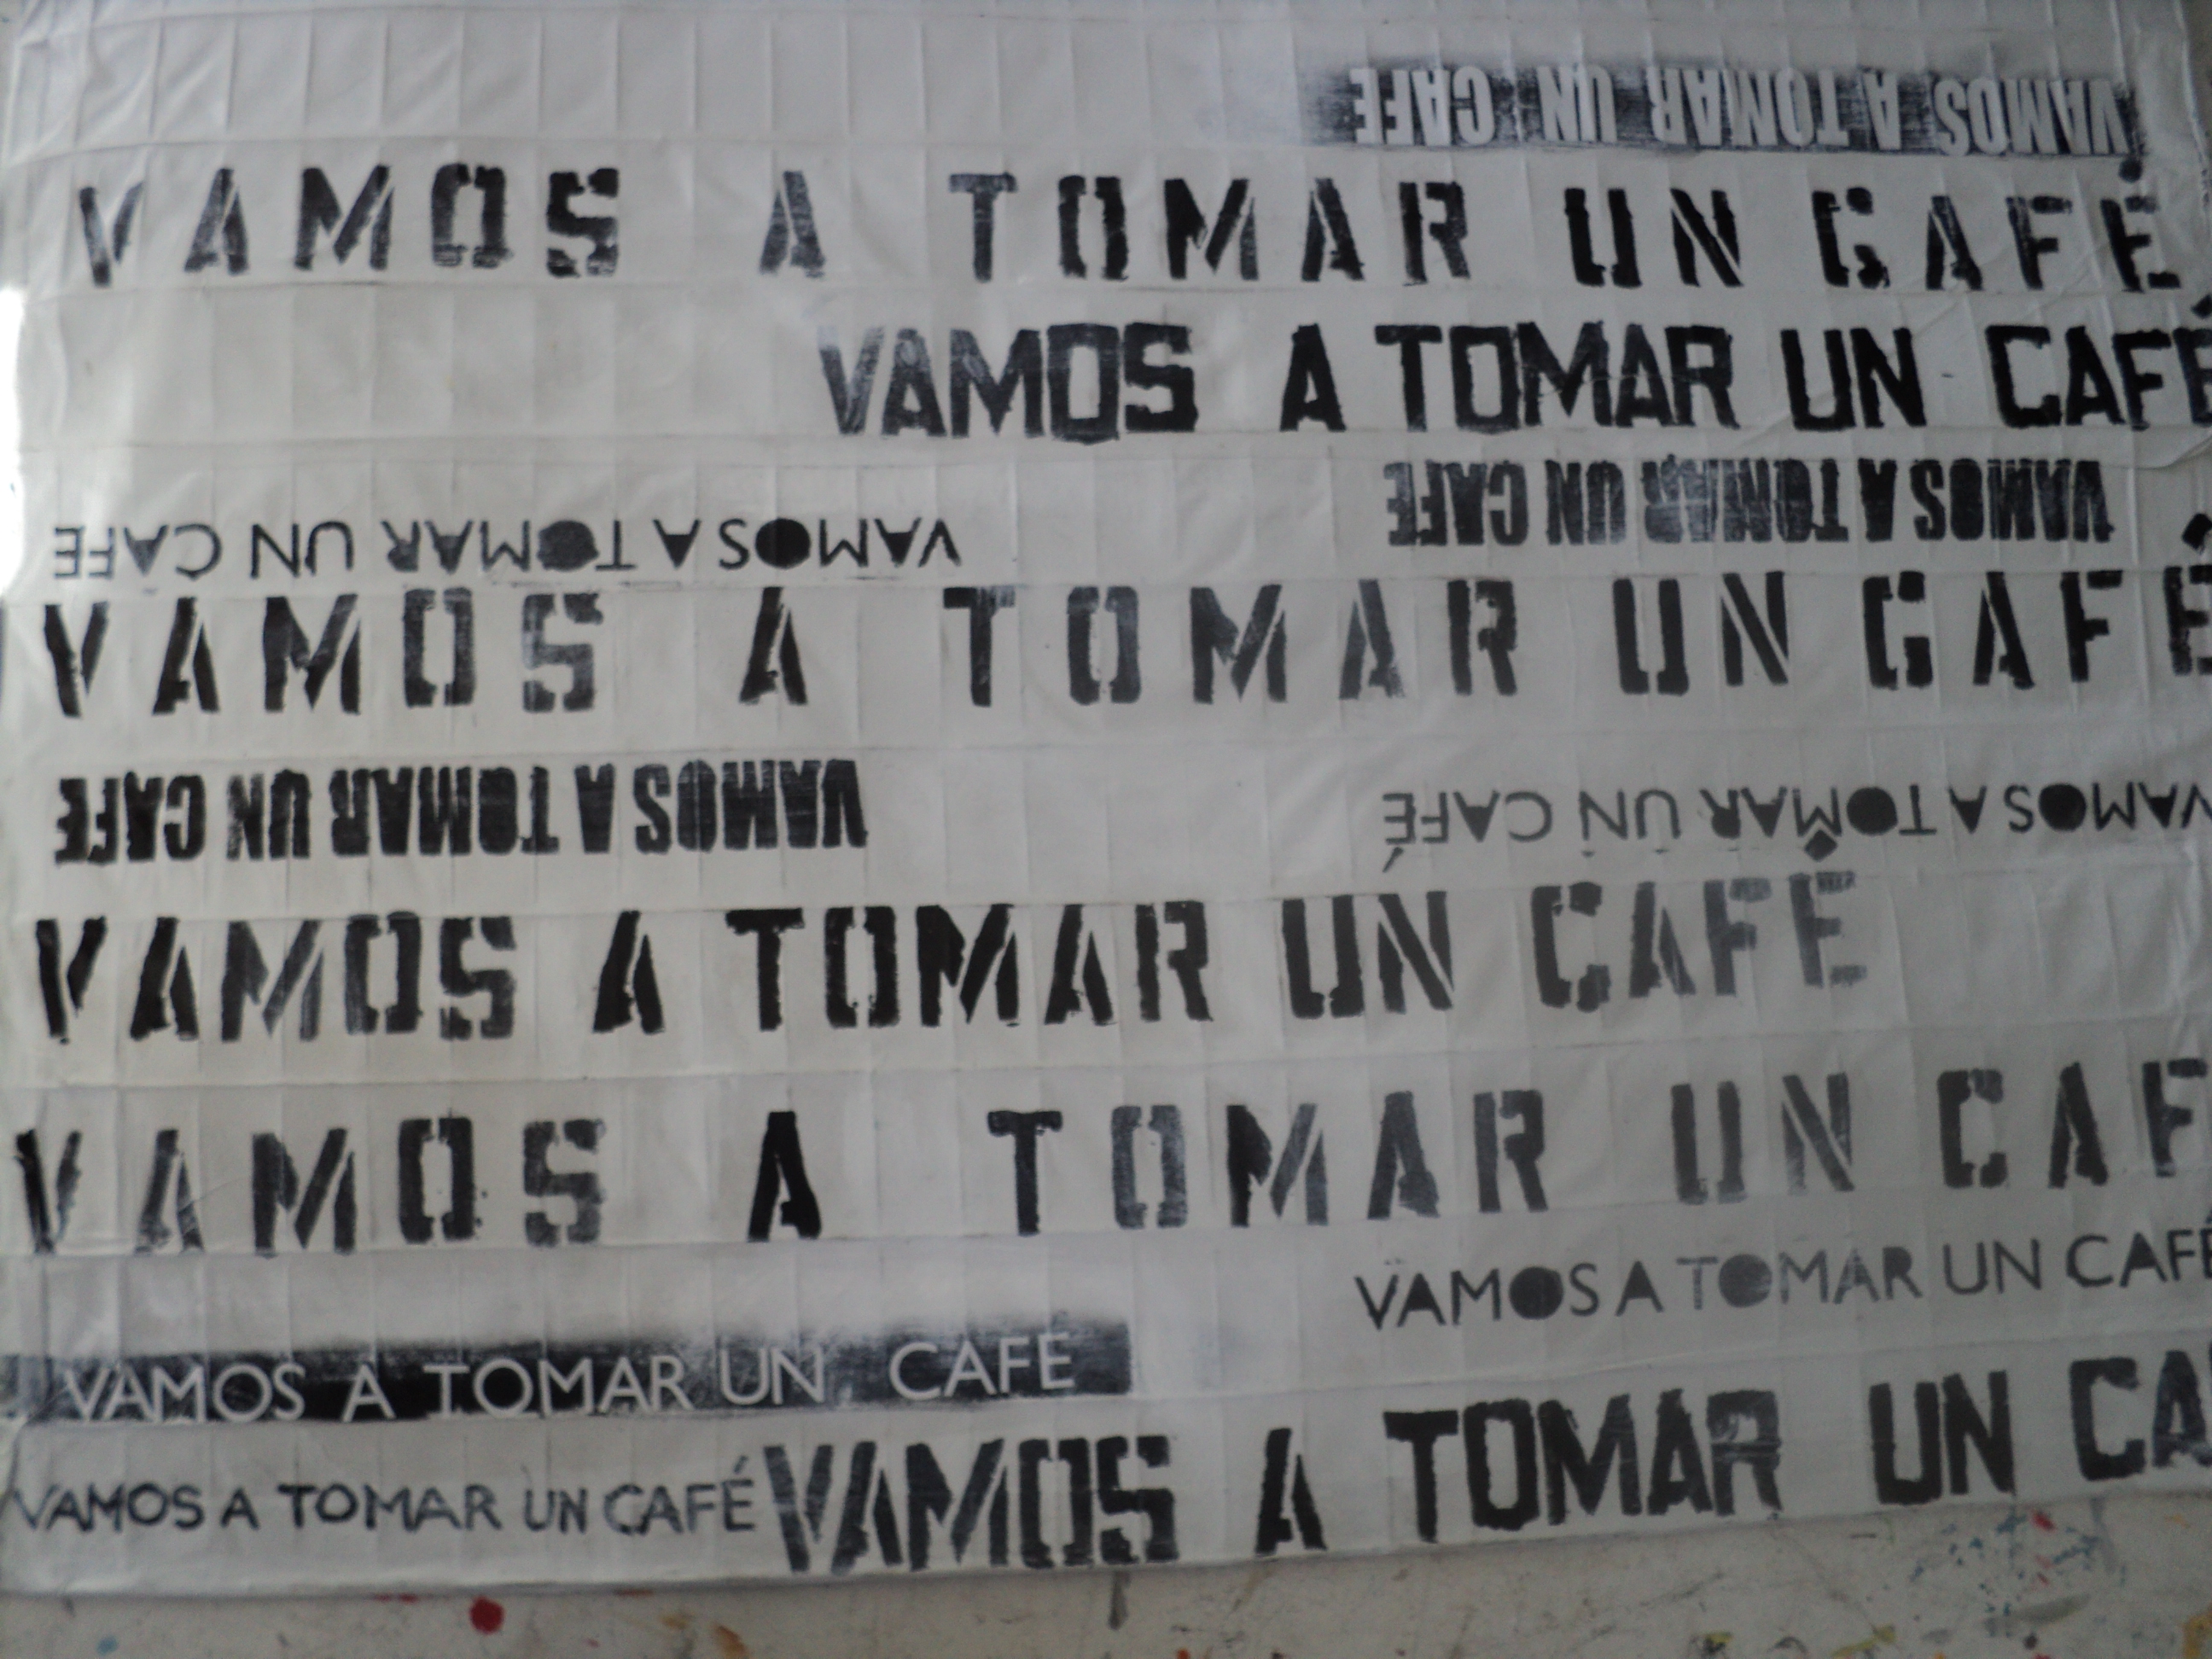 VAMOS A TOMAR UN CAFE
VAMOS A TOMAR UN CAFÉ
VAMOS A TOMAR UN CAFÉ
VAMOS A TOMAR UN CAFE
VAMOS A TOMAR UN CAFE
VAMOS A TOMAR UN CAFÉ
VAMOS A TOMAR UN CAFE
VAMOS A TOMAR UN CAFÉ
VAMOS A TOMAR UN CAFÉ
VAMOS A TOMAR UN CAF
VAMOS A TOMAR UN CAFÉ
VAMOS A TOMAR UN CAFE
VAMOS A TOMAR UN CAFÉ
VAMOS A TOMAR UN CA